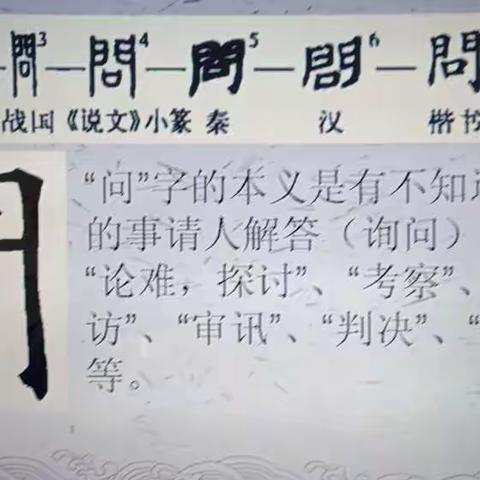 問3—問4—問5—問6—問
战国《说文》小篆 秦 汉 楷书
“问”字的本义是有不知道
的事请人解答（询问）
“论难，探讨”、“考察”、
访”、“审讯”、“判决”、“
等。